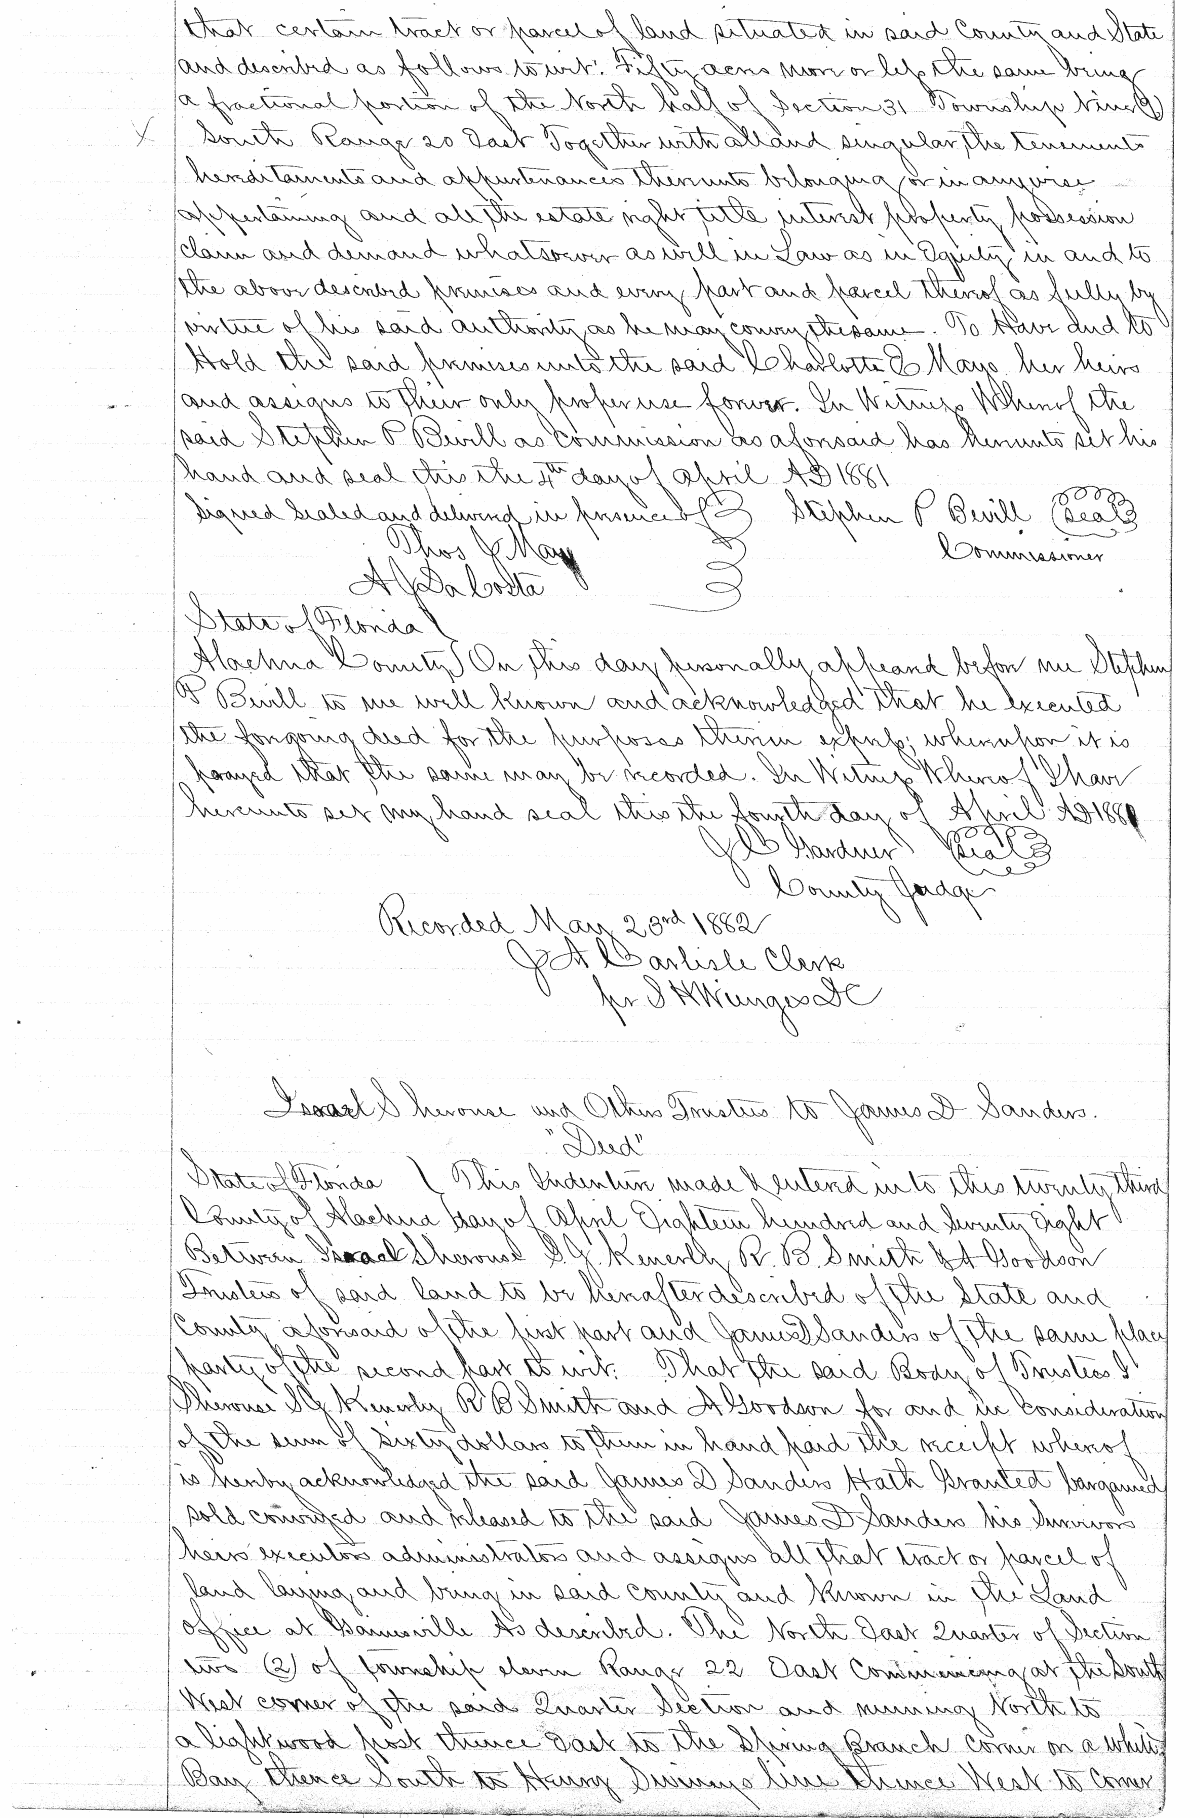 that certain tract or parcel of land situated in said County and State
and described as follows to wit: Fifty acres more or less the same being
a fractional portion of the North half of Section 31 Township Nine (9)
X South Range 20 East Together with all and singular, the tenements
hereditaments and appurtenances thereunto belonging or in anywise
appertaining and all the estate right title interest property possession
claim and demand whatsoever as well in Law as in Equity in and to
the above described premises and every part and parcel thereof as fully by
virtue of his said authority as he may convey the same. To Have and to
Hold the said premises unto the said Charlotte E Mays her heirs
and assigns to their only proper use forever. In Witness Whereof the
said Stephen P Bevill as Commission as aforesaid has hereunto set his
hand and seal this the 4th day of April AD 1881
Signed Sealed and delivered in presence of Stephen P Bevill (Seal)
Thos J May Commissioner
A J DaCosta
State of Florida
Alachua County On this day personally appeared before me Stephen
P Bevill to me well known and acknowledged that he executed
the forgoing deed for the purposes therein express; whereupon it is
prayed that the same may be recorded. In Witness Whereof I have
hereunto set my hand seal this the fourth day of April AD 1881
J C Gardner (Seal)
County Judge
Recorded May 23rd 1882
J A Carlisle Clerk
pr S H Wienges DC
Israel Sherouse and Others Trustees to James D Sanders.
"Deed"
State of Florida ( This Indenture made & entered into this twenty third
County of Alachua day of April Eighteen hundred and Seventy Eight
Between Israel Sherouse S. G. Kenerly R. B. Smith & A Goodson
Trustees of said land to be hereafter described of the State and
County aforesaid of the first part and James D Sanders of the same place
party of the second part to wit: That the said Body of Trustees I
Sherouse S G Kenerly R B Smith and A Goodson for and in Consideration
of the sum of Sixty dollars to them in hand paid the receipt whereof
is hereby acknowledged the said James D Sanders Hath Granted bargained
sold conveyed and released to the said James D Sanders his Survivors
heirs executors administrators and assigns all that tract or parcel of
land laying and being in said County and Known in the Land
office at Gainesville As described. The North East Quarter of Section
two (2) of township eleven Range 22 East Commencing at the South
West corner of the said Quarter Section and running North to
a lightwood post thence East to the Spring Branch Corner on a White
Bay thence South to Henry line thence West to Corner